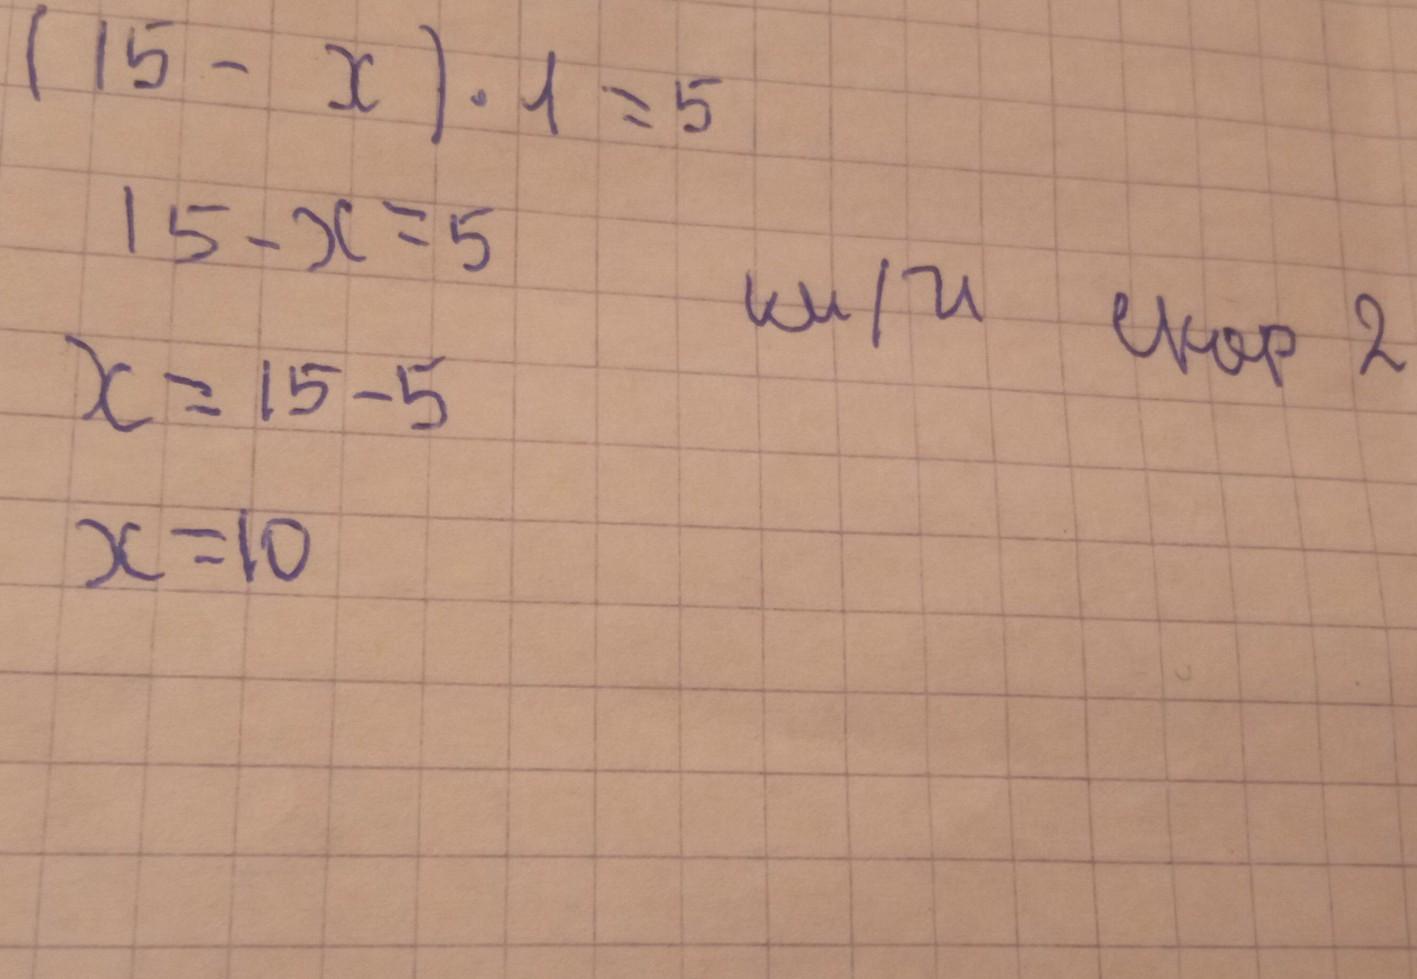 (15 - x) · 1 = 5
15 - x = 5
км/ч скор 2
x = 15 - 5
x = 10